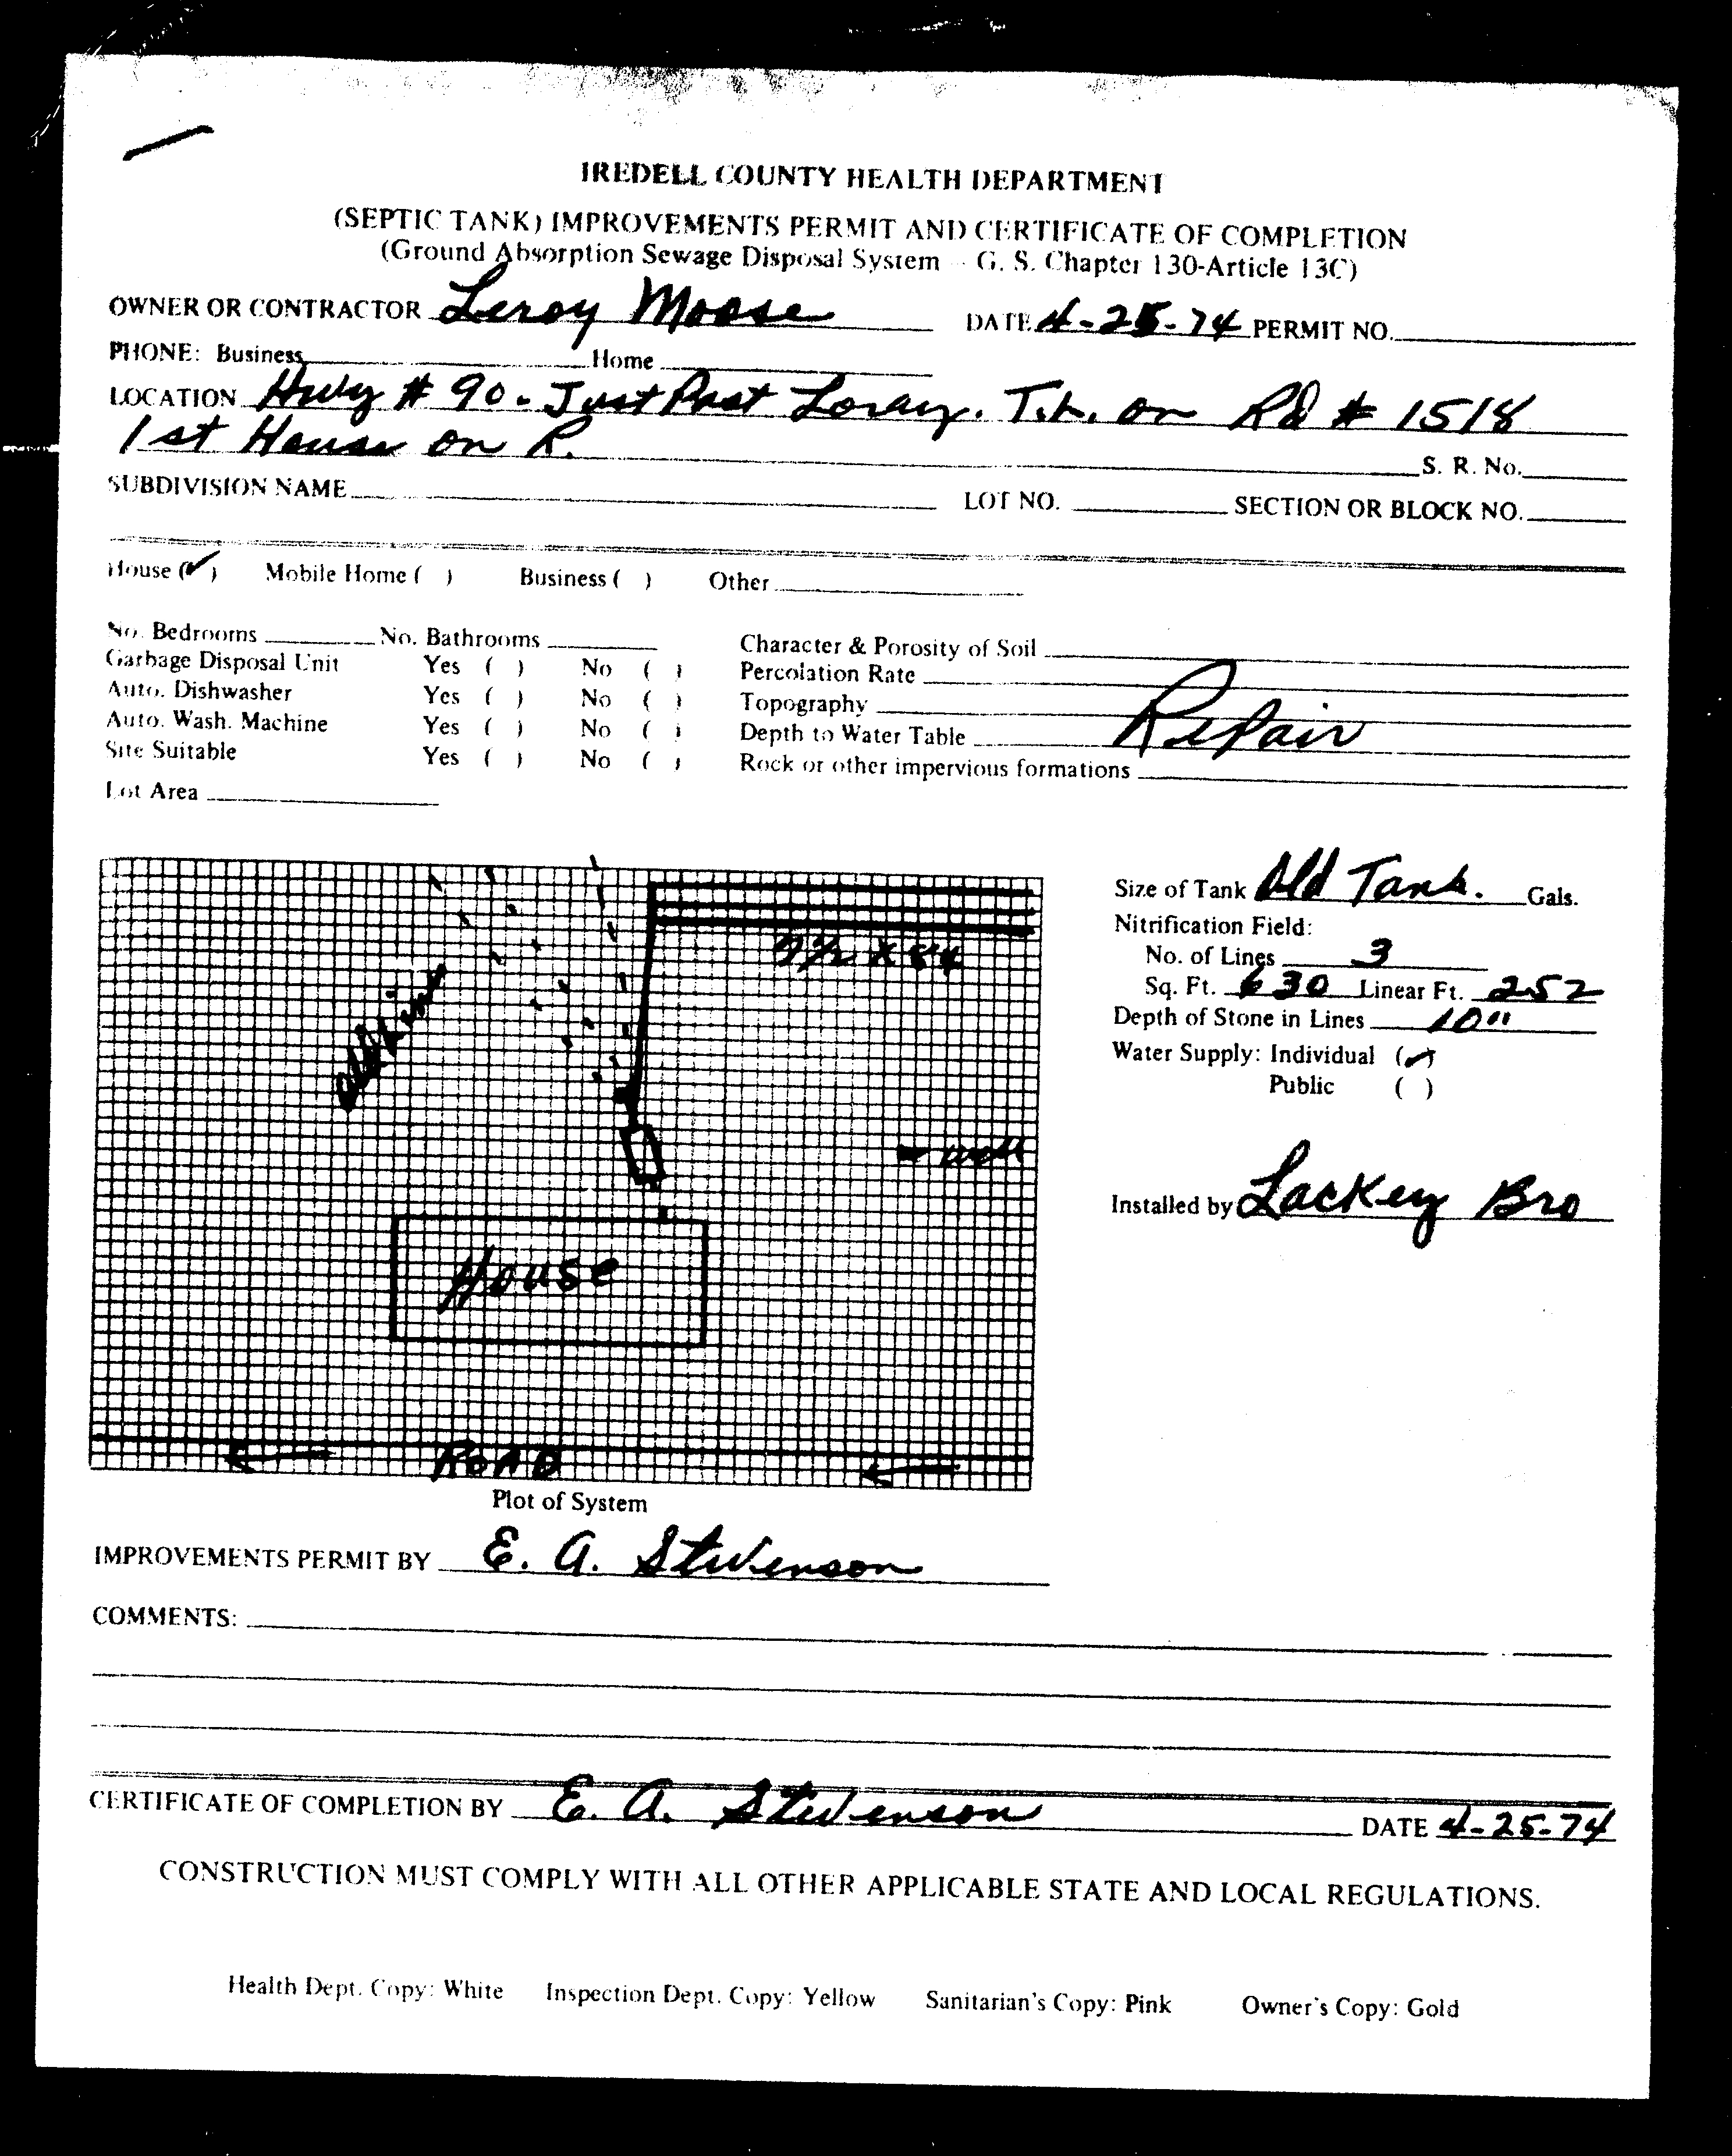 IREDELL COUNTY HEALTH DEPARTMENT
(SEPTIC TANK) IMPROVEMENTS PERMIT AND CERTIFICATE OF COMPLETION
(Ground Absorption Sewage Disposal System - G. S. Chapter 130-Article 13C)
OWNER OR CONTRACTOR Leroy Moose DATE 4-25-74 PERMIT NO.
PHONE: Business Home
LOCATION Hwy # 90 - Just Past Loray. T.L. on Rd # 1518
1st House on R. S. R. No.
SUBDIVISION NAME LOT NO. SECTION OR BLOCK NO.
House (✓) Mobile Home ( ) Business ( ) Other
No. Bedrooms No. Bathrooms Character & Porosity of Soil
Garbage Disposal Unit Yes ( ) No ( ) Percolation Rate
Auto. Dishwasher Yes ( ) No ( ) Topography
Auto. Wash. Machine Yes ( ) No ( ) Depth to Water Table Repair
Site Suitable Yes ( ) No ( ) Rock or other impervious formations
Lot Area
Size of Tank Old Tank. Gals.
Nitrification Field:
No. of Lines 3
Sq. Ft. 630 Linear Ft. 252
Depth of Stone in Lines 10"
Water Supply: Individual (✓)
Public ( )
Installed by Lackey Bro
7½ X 84
old Line
well
House
ROAD
Plot of System
IMPROVEMENTS PERMIT BY E. A. Stevenson
COMMENTS:
CERTIFICATE OF COMPLETION BY E. A. Stevenson DATE 4-25-74
CONSTRUCTION MUST COMPLY WITH ALL OTHER APPLICABLE STATE AND LOCAL REGULATIONS.
Health Dept. Copy: White Inspection Dept. Copy: Yellow Sanitarian's Copy: Pink Owner's Copy: Gold